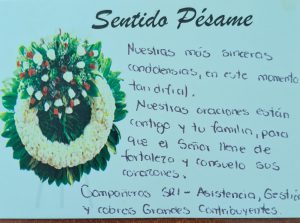 Sentido Pésame
Nuestras más sinceras
condolensias, en este momento
tan difícil.
Nuestras oraciones están
contigo y tu familia, para
que el Señor llene de
fortaleza y consuelo sus
corazones.
Compañeros SRI - Asistencia, Gestió
y cobros Grandes Contribuyentes.